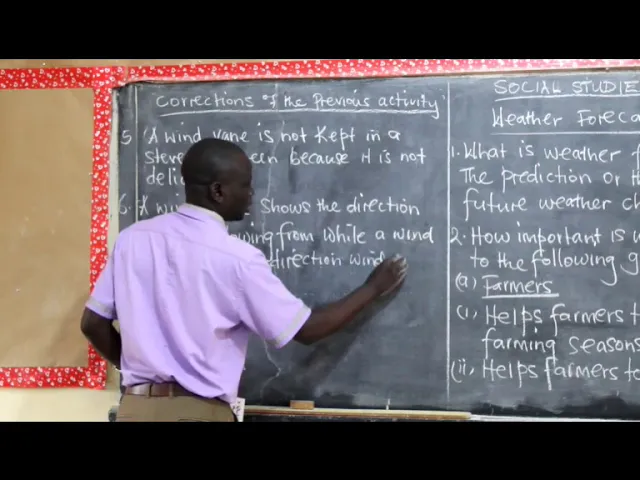 Corrections of the Previous activity
5 A wind vane is not kept in a
steve een because it is not
deli
6. A win shows the direction
owing from while a wind
direction wind
SOCIAL STUDIE
Weather Foreca
1. What is weather f
The prediction or th
future weather ch
2. How important is w
to the following g
(a) Farmers
(i) Helps farmers t
farming seasons
(ii, Helps farmers to